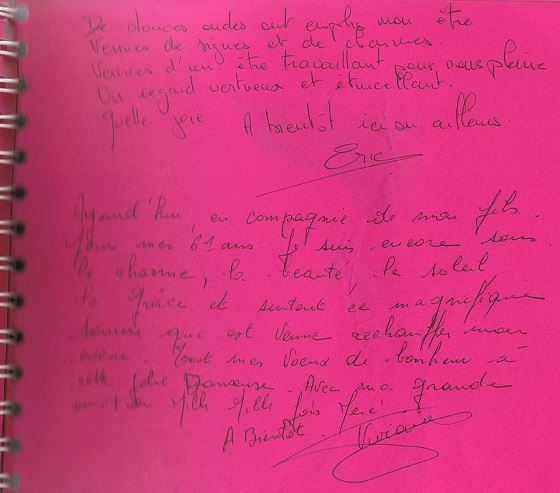 De douces ondes ont emplis mon être
Venues de signes et de charmes.
Venues d'un être travaillant pour nous plaire
Un regard vertueux et étincellant.
Quelle joie A bientôt ici ou ailleurs.
Eric
Aujourd'hui, en compagnie de mon fils.
Pour mes 61 ans. Je suis encore sous
le charme, la beauté, le soleil,
la grâce et surtout ce magnifique
sourire que est venue rechauffer mon
coeur. Tout mes voeux de bonheur à
cette jolie Danseuse. Avec ma grande
emotion Mille Mille fois Merci
A Bientôt